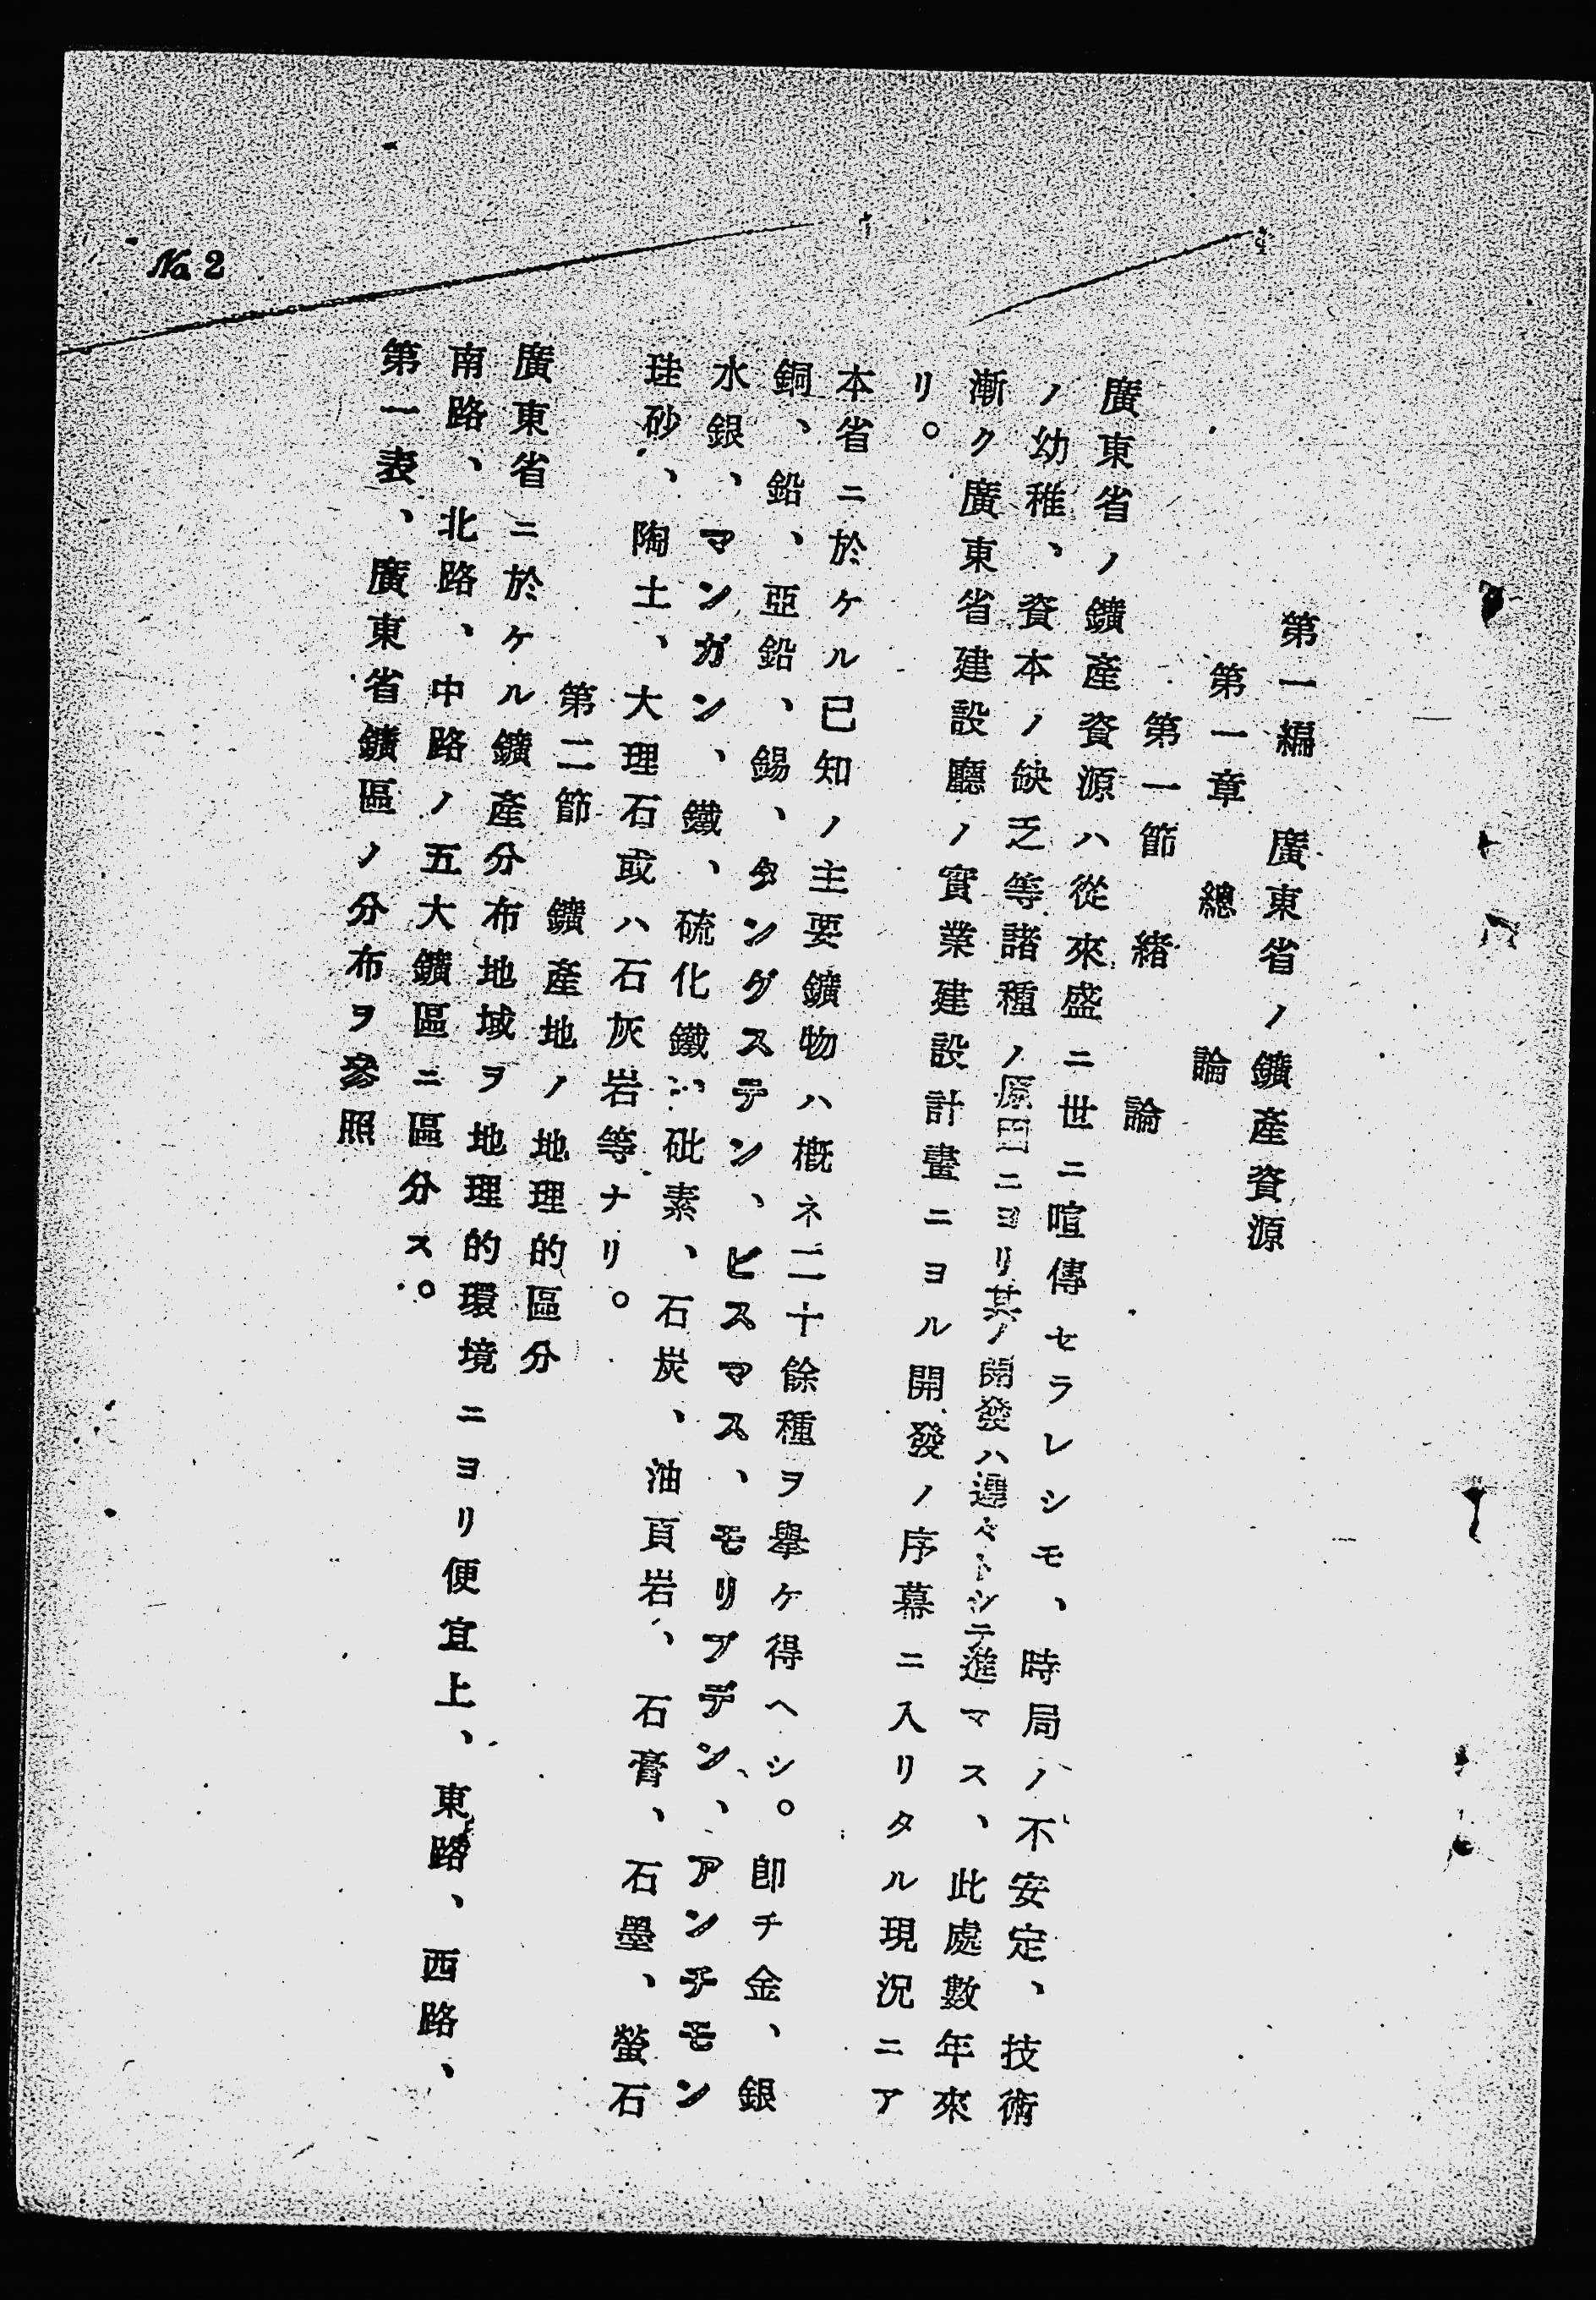 第一編　廣東省ノ鑛產資源
第一章　總論
第一節　緒論
廣東省ノ鑛產資源ハ從來盛ニ世ニ喧傳セラレシモ、時局ノ不安定、技術
ノ幼稚、資本ノ缺乏等諸種ノ原因ニヨリ其ノ開發ハ遲々トシテ進マス、此處數年來
漸ク廣東省建設廳ノ實業建設計畫ニヨル開發ノ序幕ニ入リタル現況ニア
リ。
本省ニ於ケル已知ノ主要鑛物ハ概ネ二十餘種ヲ擧ケ得ヘシ。卽チ金、銀
銅、鉛、亞鉛、錫、タングステン、ビスマス、モリブデン、アンチモン
水銀、マンガン、鐵、硫化鐵、砒素、石炭、油頁岩、石膏、石墨、螢石
珪砂、陶土、大理石或ハ石灰岩等ナリ。
第二節　鑛產地ノ地理的區分
廣東省ニ於ケル鑛產分布地域ヲ地理的環境ニヨリ便宜上、東路、西路、
南路、北路、中路ノ五大鑛區ニ區分ス。
第一表、廣東省鑛區ノ分布ヲ參照
№2